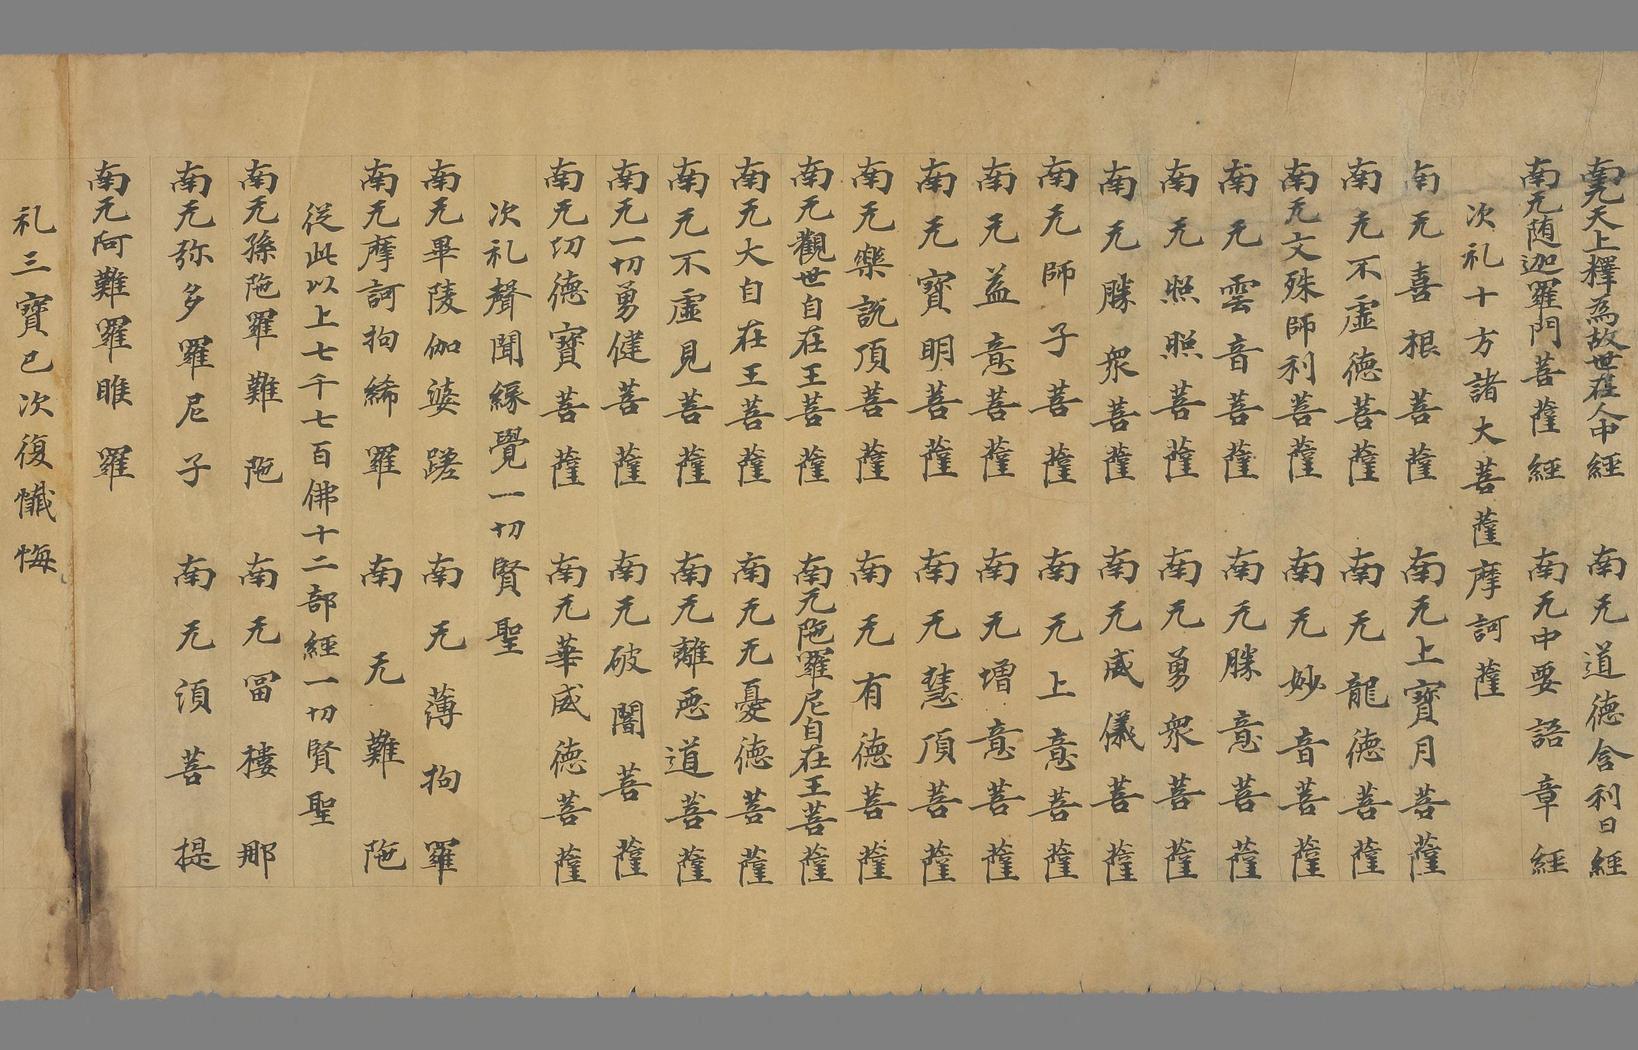 南无天上釋為故世在人中經 南无道德含利日經
南无随迦羅門菩薩經 南无中要語章經
次礼十方諸大菩薩摩訶薩
南无喜根菩薩 南无上寶月菩薩
南无不虛德菩薩 南无龍德菩薩
南无文殊師利菩薩 南无妙音菩薩
南无雲音菩薩 南无勝意菩薩
南无照照菩薩 南无勇衆菩薩
南无勝衆菩薩 南无威儀菩薩
南无師子菩薩 南无上意菩薩
南无益意菩薩 南无增意菩薩
南无寶明菩薩 南无慧頂菩薩
南无樂說頂菩薩 南无有德菩薩
南无觀世自在王菩薩 南无陁羅尼自在王菩薩
南无大自在王菩薩 南无无憂德菩薩
南无不虛見菩薩 南无離惡道菩薩
南无一切勇健菩薩 南无破闇菩薩
南无功德寶菩薩 南无華威德菩薩
次礼聲聞緣覺一切賢聖
南无畢陵伽婆蹉 南无薄拘羅
南无摩訶拘絺羅 南无難陁
從此以上七千七百佛十二部經一切賢聖
南无孫陁羅難陁 南无冨樓那
南无弥多羅尼子 南无湏菩提
南无阿難羅睢羅
礼三寶已次復懺悔